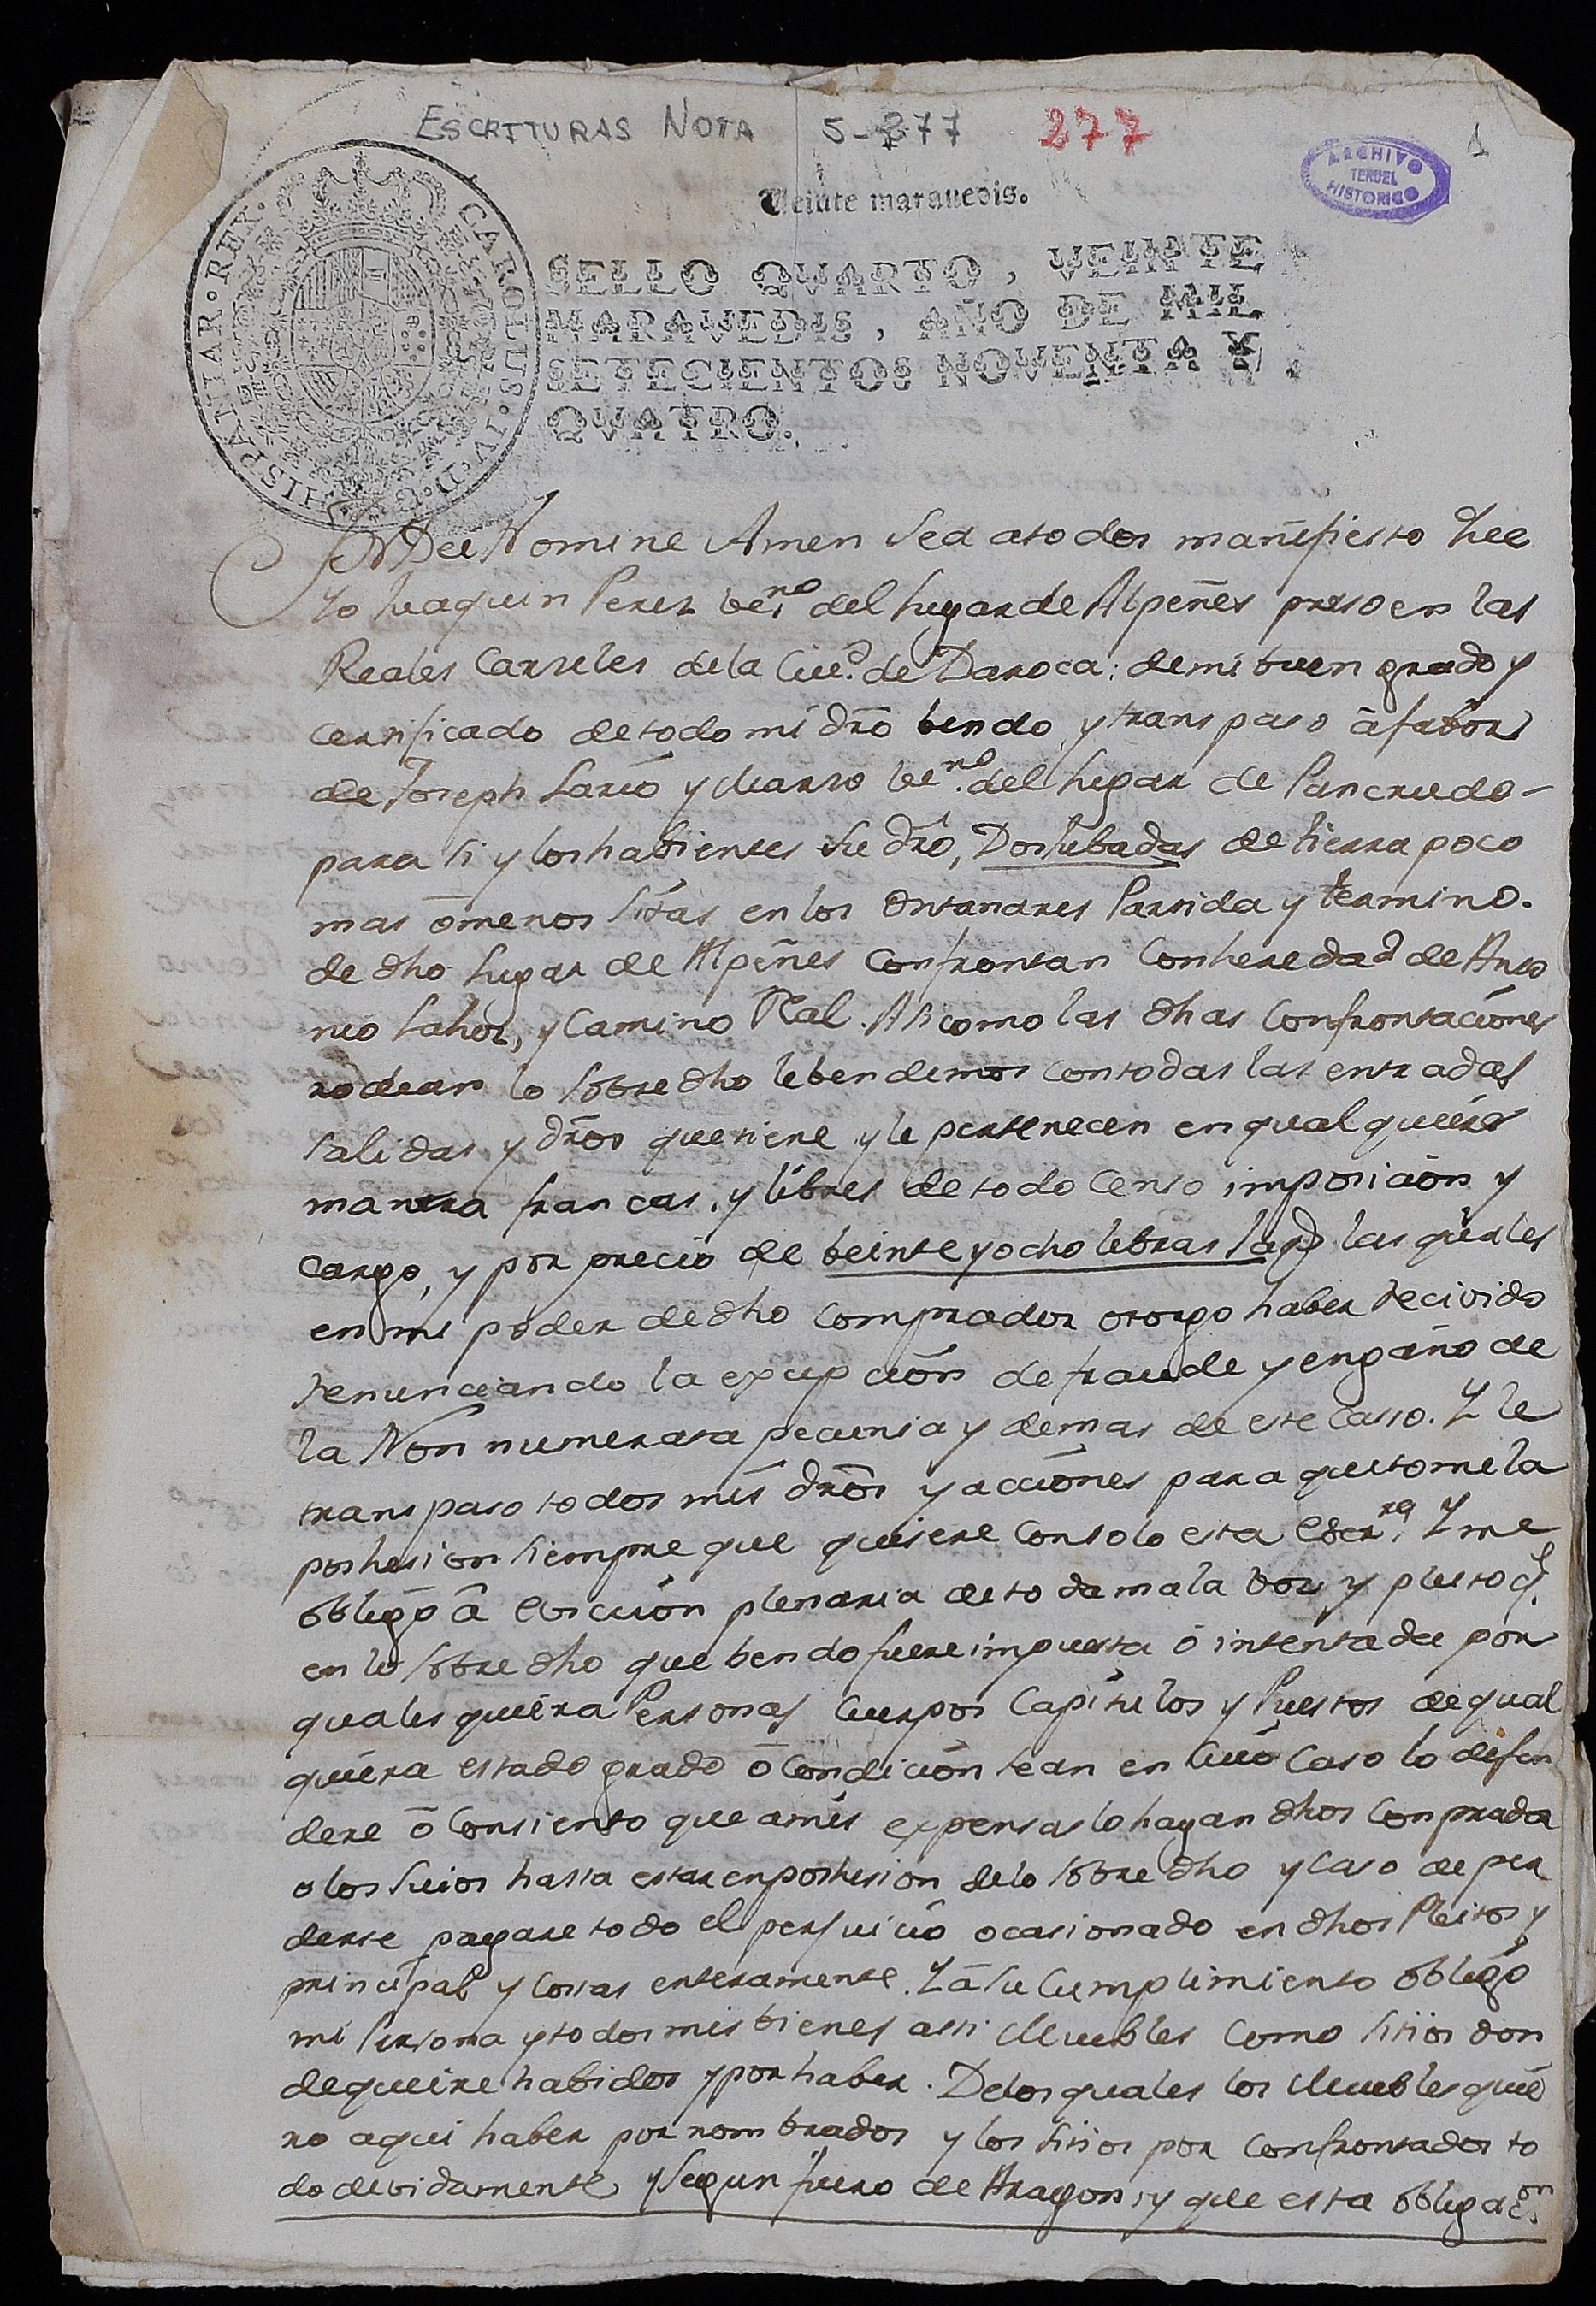 ESCRITURAS NOTA 5-277 277 1
ARCHIVO
TERUEL
HISTORICO
Veinte maravedis.
CAROLUS. IV. D. G. HISPANIAR. REX.
SELLO QVARTO, VEINTE
MARAVEDIS, AÑO DE MIL
SETECIENTOS NOVENTA Y
QVATRO.
In Dei Nomine Amen Sea atodos manifiesto que
Yo Juaquin Perez bei.no del lugar de Alpeñes preso en las
Reales Carzeles dela Ciud. de Daroca: de mi buen grado y
certificado de todo mi dro bendo, y transpaso á fabor
de Joseph Lario y Marzo be.no del lugar de Pancrudo-
para si y los habientes su dro, Dos Jubadas de tierra poco
mas ó menos sitas en los Ontanares Partida y termino.
de dho lugar de Alpeñes Confrontan Con heredad de Anto
nio Lahoz, y Camino Real. Asi como las dhas Confrontaciones
rodean lo sobre dho le bendemos con todas las entradas
salidas y dros que tiene y le pertenecen en qualquiera
manera francas, y libres de todo Censo imposicion y
cargo, y por precio de beinte y ocho libras Jaq. las quales
en mi poder de dho Comprador otorgo haber recivido
renunciando la excepcion de fraude y engaño de
la Non numerata pecunia y demas de este Casso. Y le
transpaso todos mis dros y acciones para que tome la
poshesion siempre que quisere Con solo esta Escr.ra Y me
obligo á eviccion plenaria de toda mala boz y pleito q.
en lo sobre dho que bendo fuere impuesta ó intentada por
qualesquiera Personas Cuerpos Capitulos y Puestos de qual
quiera estado grado ó Condicion sean en cuio Caso lo defen
dere ó Consiento que a mis expensas lo hagan dhos Conprador
o los suios hasta estar en poshesion de lo sobre dho y Caso de per
derse pagare todo el perjuicio ocasionado en dhos Pleitos y
principal y Costas enteramente. Y á su Cumplimiento obligo
mi Persona y todos mis bienes assi Muebles como sitios don
dequiere habidos y por haber. De los quales los Muebles quie
ro aqui haber por nombrados y los sitios por Confrontados to
do devidamente y segun fuero de Aragon, y que esta obligac.on